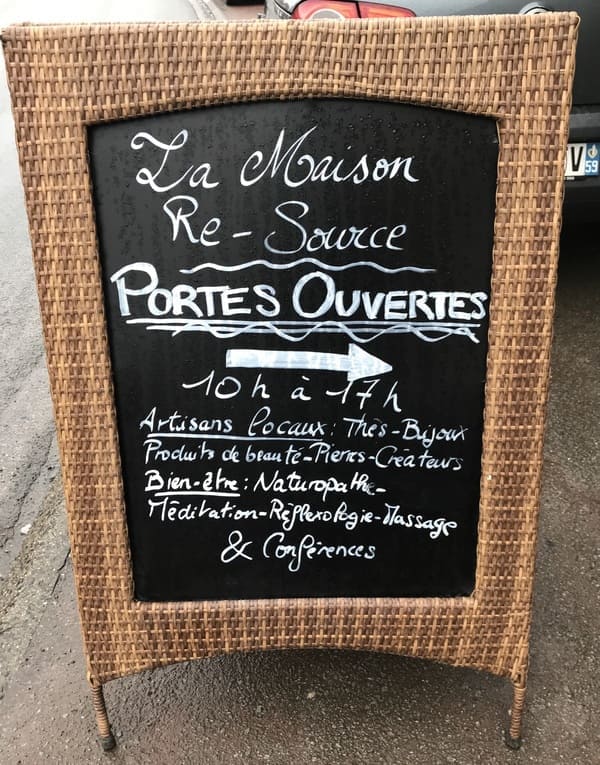 La Maison
Re-Source
PORTES OUVERTES
10h à 17h
Artisans locaux : Thés - Bijoux
Produits de beauté - Pierres - Créateurs
Bien-être : Naturopathe -
Méditation - Réflexologie - Massage
& Conférences
V
59